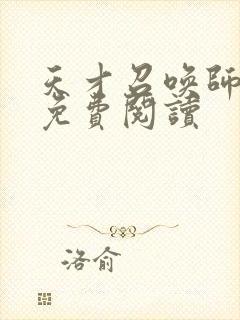 天才召喚師
免費閱讀
洛俞